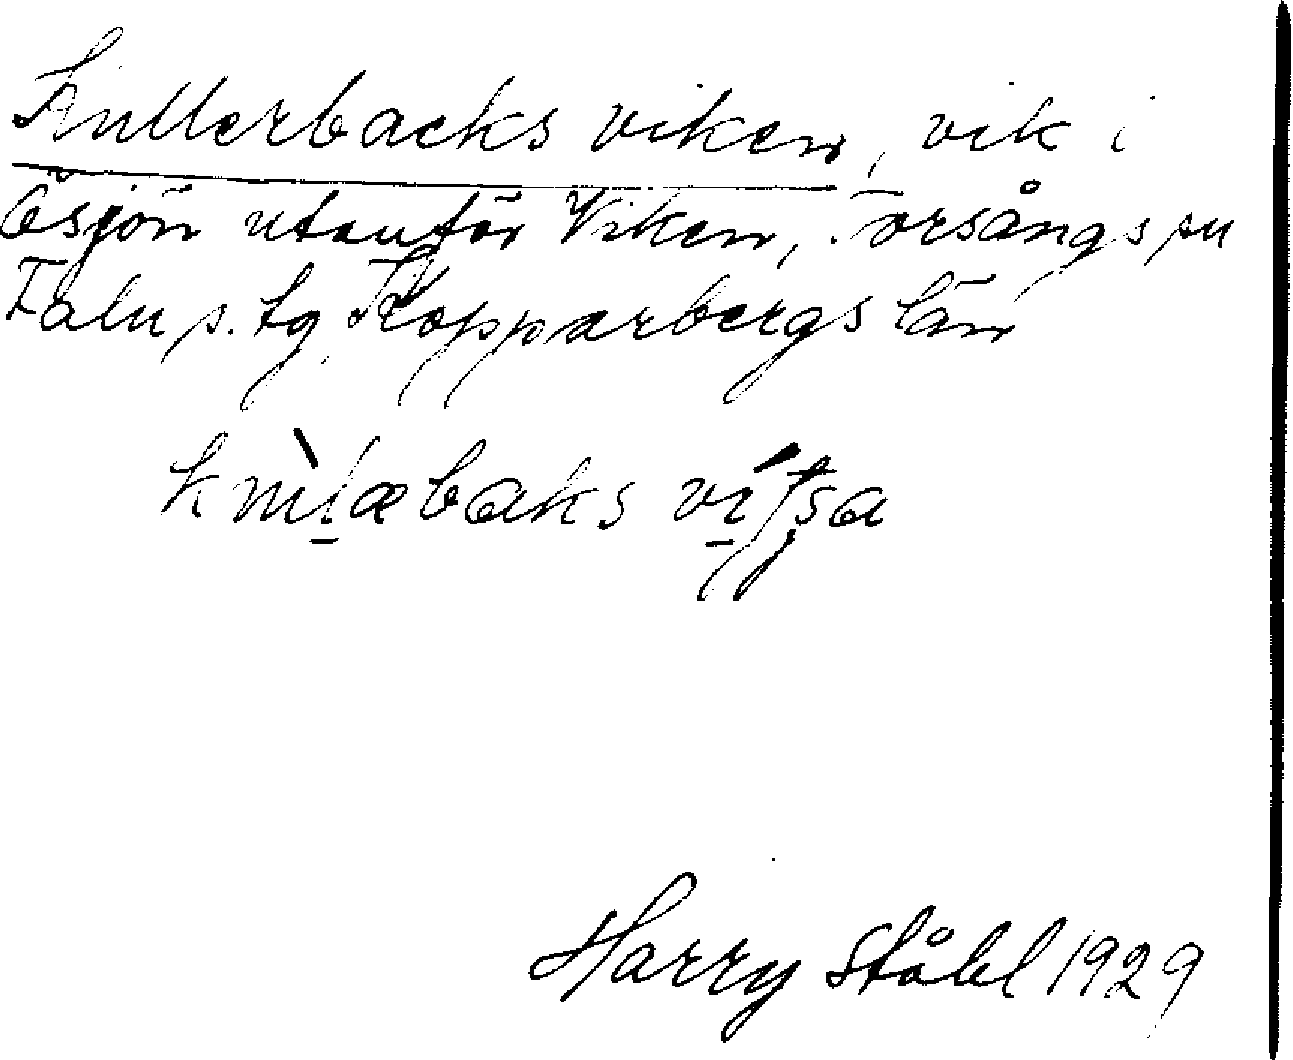 Knllerbacks viken, vik i
Ösjön utanför Viken, Torsångs sn
Falu s. tg Kopparbergs län
Harry Ståhl 1929